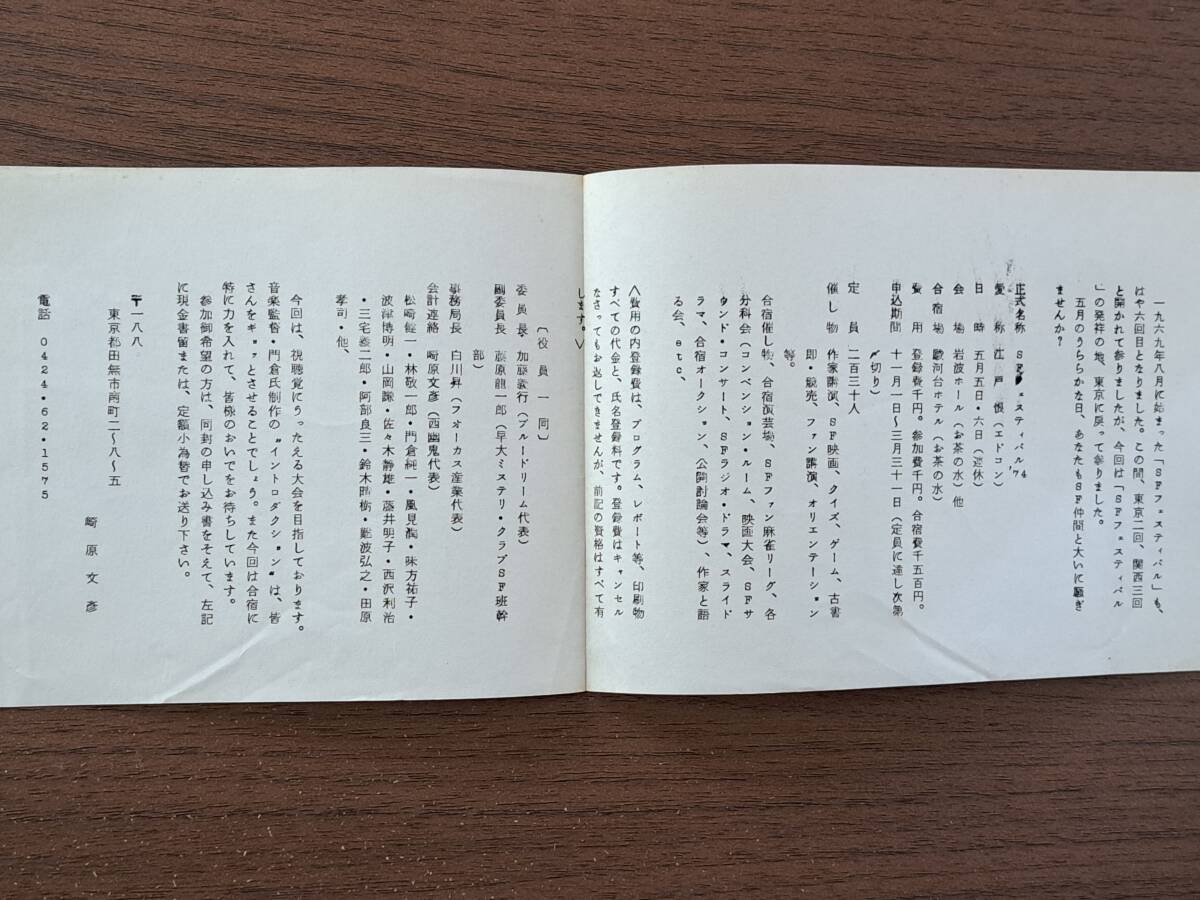 一九六九年八月に始まった「SFフェスティバル」も、
はや六回目となりました。この間、東京二回、関西三回
と開かれて参りましたが、今回は「SFフェスティバル
」の発祥の地、東京に戻って参りました。
五月のうららかな日、あなたもSF仲間と大いに願ぎ
ませんか?
正式名称 SFフェスティバル'74
愛称 江戸恨(エドコン)
日時 五月五日・六日(連休)
会場 岩波ホール(お茶の水)他
合宿場 駿河台ホテル(お茶の水)
費用 登録費千円。参加費千円。合宿費千五百円。
申込期間 十一月一日〜三月三十一日(定員に達し次第
〆切り)
定員 二百三十人
催し物 作家講演、SF映画、クイズ、ゲーム、古書
即・競売、ファン講演、オリエンテーション
等。
合宿催し物、合宿演芸場、SFファン麻雀リーグ、各
分科会(コンベンション・ルーム、映画大会、SFサ
ウンド・コンサート、SFラジオ・ドラマ、スライド
ラマ、合宿オークション、公開討論会等)、作家と語
る会、etc、
〈費用の内登録費は、プログラム、レポート等、印刷物
すべての代金と、氏名登録料です。登録費はキャンセル
なさってもお返しできませんが、前記の資格はすべて有
します。〉
〔役員一同〕
委員長 加藤義行(ブルードリーム代表)
副委員長 藤原龍一郎(早大ミステリ・クラブSF班幹
部)
事務局長 白川昇(フオーカス産業代表)
会計連絡 崎原文彦(西幽鬼代表)
松崎健一・林敬一郎・門倉純一・風見潤・味方祐子・
波津博明・山岡謙・佐々木静雄・藤井明子・西沢利治
・三宅義二郎・阿部良三・鈴木晴樹・難波弘之・田原
孝司・他、
今回は、視聴覚にうったえる大会を目指しております。
音楽監督・門倉氏制作の"イントロダクション"は、皆
さんをギョッとさせることでしょう。また今回は合宿に
特に力を入れて、皆様のおいでをお待ちしています。
参加御希望の方は、同封の申し込み書をそえて、左記
に現金書留または、定額小為替でお送り下さい。
〒一八八
東京都田無市南町二〜八〜五
崎原文彦
電話 0424・62・1575